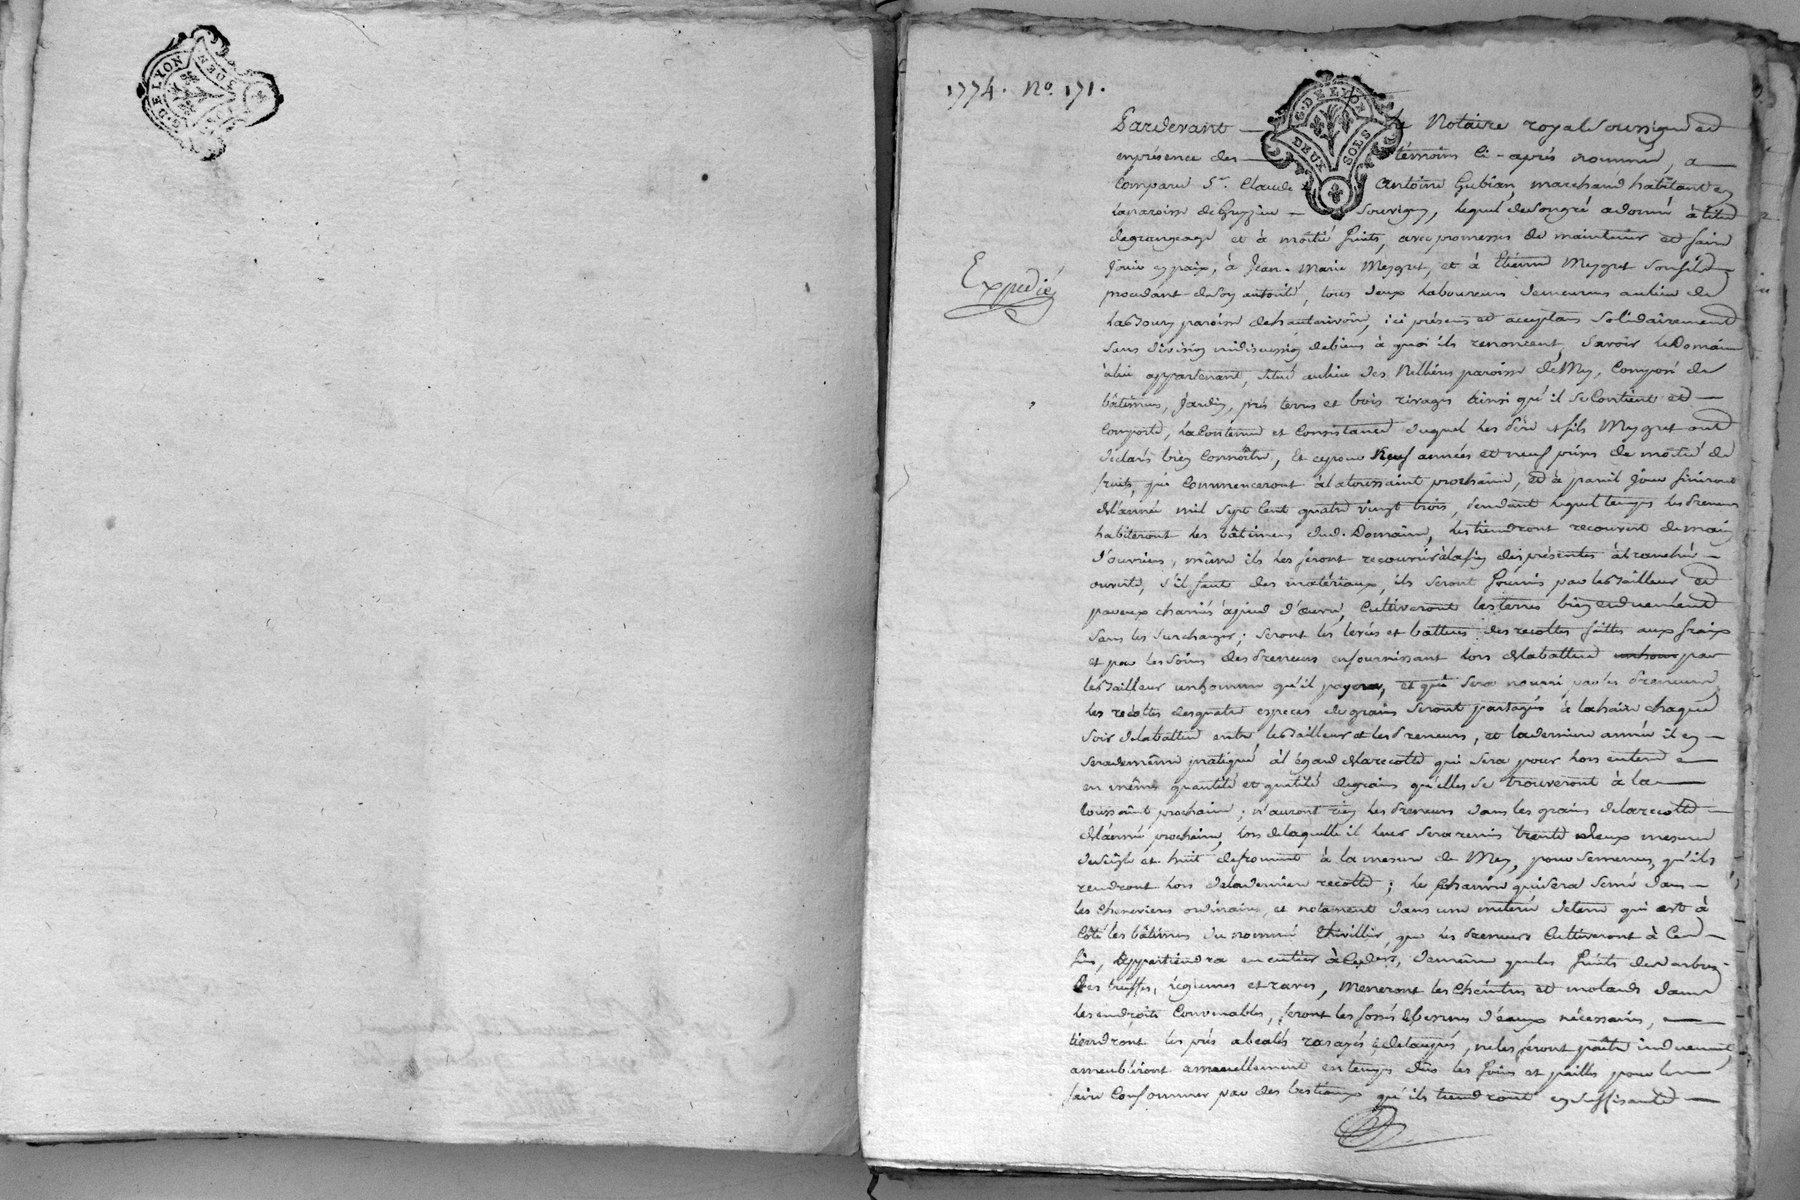 G. DE LYON
DEUX SOLS
1774. No. 171.
G. DE LYON
DEUX SOLS
Pardevant le Notaire royal soussigné et
en présence des témoins ci-après nommés, a
comparu Sr. Claude Antoine Gubian, marchand habitant en
la paroisse de Grézieu Souvigny, lequel de son gré a donné à titre
de grangeage et à moitié fruits, avec promesse de maintenir et faire
Expedié
jouir en paix, à Jean-Marie Meygret, et à Etienne Meygret son fils
procedant de son autorité, tous deux laboureurs demeurans au lieu de
paroisse de hauterivoire, ici présens et acceptans solidairement
sans division ni discussion de biens à quoi ils renoncent, savoir le Domaine
à lui appartenant, situé au lieu des paroisse de Mey, composé de
bâtimens, jardin, prés terres et bois rivages ainsi qu'il se contient et
comporte, la contenue et consistance duquel les père et fils Meygret ont
déclaré bien connoître, et ce pour neuf années et neuf prises de moitié de
fruits, qui commenceront à la toussaint prochaine, et à pareil jour finiront
de l'année mil sept cent quatre vingt trois, pendant lequel temps les preneurs
habiteront les bâtimens dud. Domaine, les tiendront recouvert de main
d'ouvriers, même ils les feront recouvrir à la fin des présentes à tranchée
ouverte, s'il faut des matériaux, ils seront fournis par le bailleur et
par eux charriés à pied d'œuvre, cultiveront les terres bien et duement
sans les surcharger; seront les levées et battues des recoltes faittes aux fraix
et par les soins des preneurs en fournissant lors de la battue par
le bailleur un homme qu'il payera, et qui sera nourri par les preneurs
les recoltes des quatre especes de grains seront partagés à la haire chaque
soir de la battue entre le bailleur et les preneurs, et la derniere année il en
sera de même pratiqué à l'égard de la recolte qui sera pour lors entere
en même quantité et qualité de grains qu'elles se trouveront à la
toussaint prochaine; n'auront rien les preneurs dans les grains de la recolte
de l'année prochaine, lors de laquelle il leur sera remis trente deux mesures
de seigle et huit de froment à la mesure de Mey, pour semences, qu'ils
rendront lors de la derniere recolte; le chanvre qui sera semé dans
les chenevieres ordinaires, et notament dans une meterée de terre qui est à
côté les bâtimens du nommé Thivillier, que les preneurs cultiveront à cette
fin, appartiendra en entier à ces derns, de même que les fruits des arbres
les truffes, légumes et raves, meneront les cheintres et molards dans
les endroits convenables, feront les fossés &bernes d'eaux nécessaires,
tiendront les prés abealés rasages & détaupés, ne les feront paître induement
ameubleront annuellement en temps dûs les foins et pailles pour les
faire consommer par des bestiaux qu'ils tiendront en suffisante